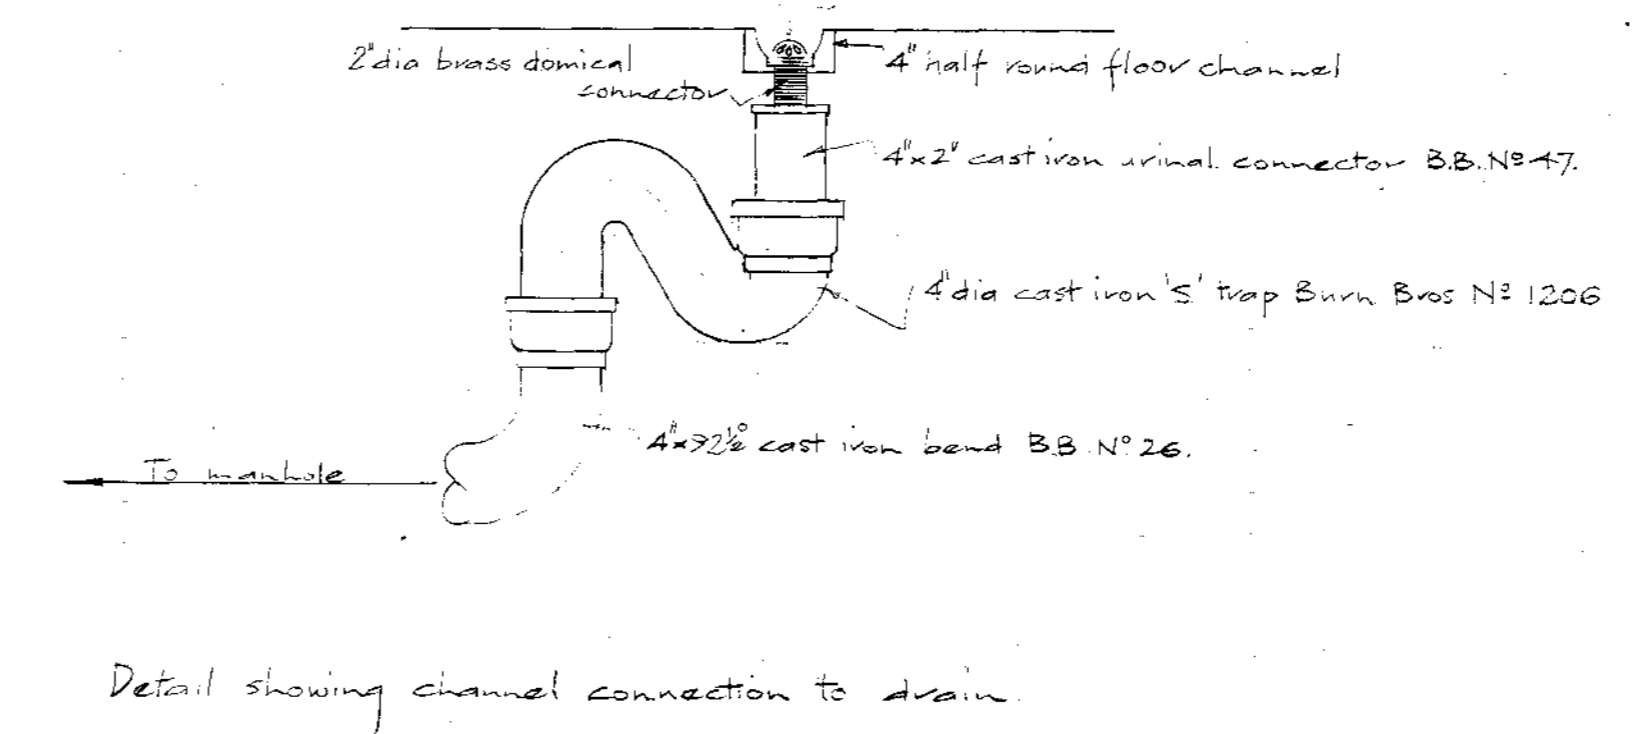 2" dia brass domical
connector
4" half round floor channel
4"x2" cast iron urinal connector B.B. Nº 47.
4" dia cast iron 'S' trap Burn Bros Nº 1206
4"x92½° cast iron bend B.B. Nº 26.
To manhole
Detail showing channel connection to drain.